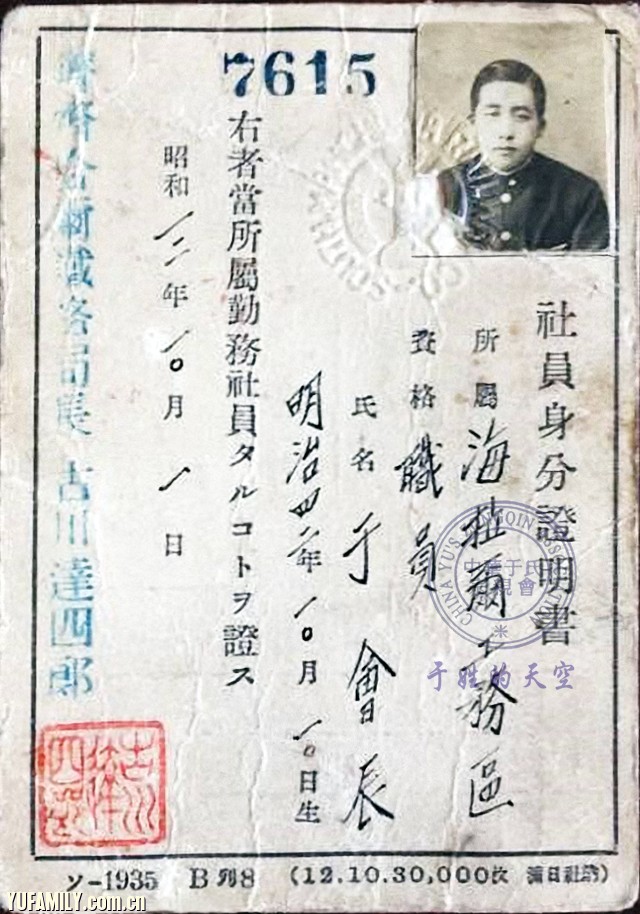 7615
社員身分證明書
所屬 海拉爾工務區
資格 職員
氏名 于會辰
明治四二年一〇月一〇日生
右者當所屬勤務社員タルコトヲ證ス
昭和一二年一〇月一日
齊齊合爾鐵路局長 古川達四郎
CHINA YU'S
中華于氏
親會
于姓的天空
ソ-1935 B列8 (12.10.30,000枚
YUFAMILY.com.cn